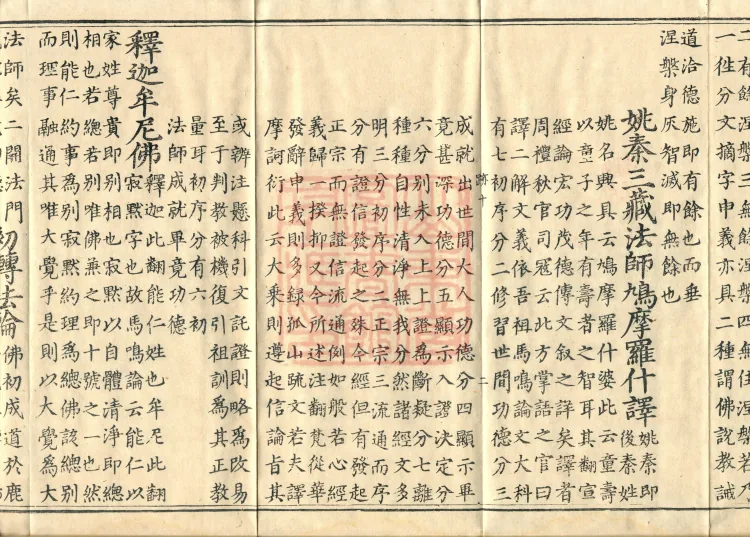 二有餘涅槃三無餘涅槃四無住涅槃若乃
一往分文摘字中義亦具二種謂佛說教誡
道洽德施即有餘也而垂
涅槃身灰智滅即無餘也
姚秦三藏法師鳩摩羅什譯姚秦即
後秦姓
姚名興具云鳩摩羅什婆此云童壽
以童子之年有壽者之智耳其翻宣
經論宏功茂德傳文叙之詳矣譯者
周禮秋官司寇云此方掌語之官曰
譯二解文義依吾祖馬鳴論文大科
有七初序分二修習世間功德分三
跡十
二
成就出世間大人功德分四顯示畢
竟甚深功德分五顯示入證決定分
六分別未入上上證為斷疑分七離
種種自性清淨無我分然諸經文多
明三分初序分二正宗三流通而序
分有證信發起之殊今經但有發起
正宗而無證信流通例如般若心經
義歸一揆抑又今所述注翻梵從華
發辭申義則多録孤山䟽文若夫譯
摩訶衍此云大乘則遵起信論旨其
或辨注懸科引文託證則略為改易
至于判教被機復引祖訓為其正教
量耳初序分有六初
法師成就畢竟功德
釋迦牟尼佛釋迦此翻能仁姓也牟尼此翻
寂默字也故馬鳴論云能仁以
家姓尊貴即別相也寂默以自體清淨即總
相也若總若別唯佛兼之即十號之一也然
則能仁約事為別寂默約理為總佛該總別
而理事融通其唯大覺乎是則以大覺為大
法師矣二開法門
初轉法輪佛初成道於鹿